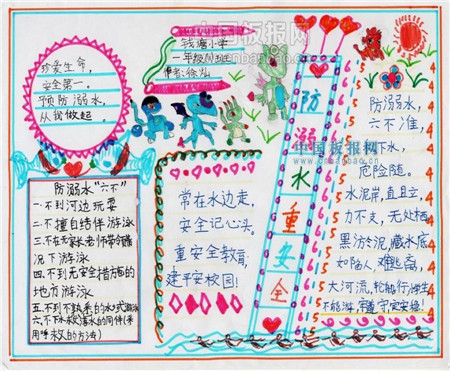 中国板报网
钱塘小学
一年级
作者:徐
珍爱生命,
安全第一。
预防溺水,
从我做起。
防溺水“六不”
一.不到河边玩耍
二.不擅自结伴游泳
三.不在无家长老师带领情
况下游泳
四.不到无安全措施的
地方游泳
五.不到不熟悉的水域游泳
六.不下水救落水的同伴(采
用呼救的方法)
常在水边走,
安全记心头。
重安全教育,
建平安校园!
防溺水重安全
防溺水,
六不准,
下水,
危险随。
水泥岸,直且立,
力不支,无处栖。
黑淤泥,藏水底,
如陷人,难逃离,
大河流,轮船行,
不能游,
中国板报网